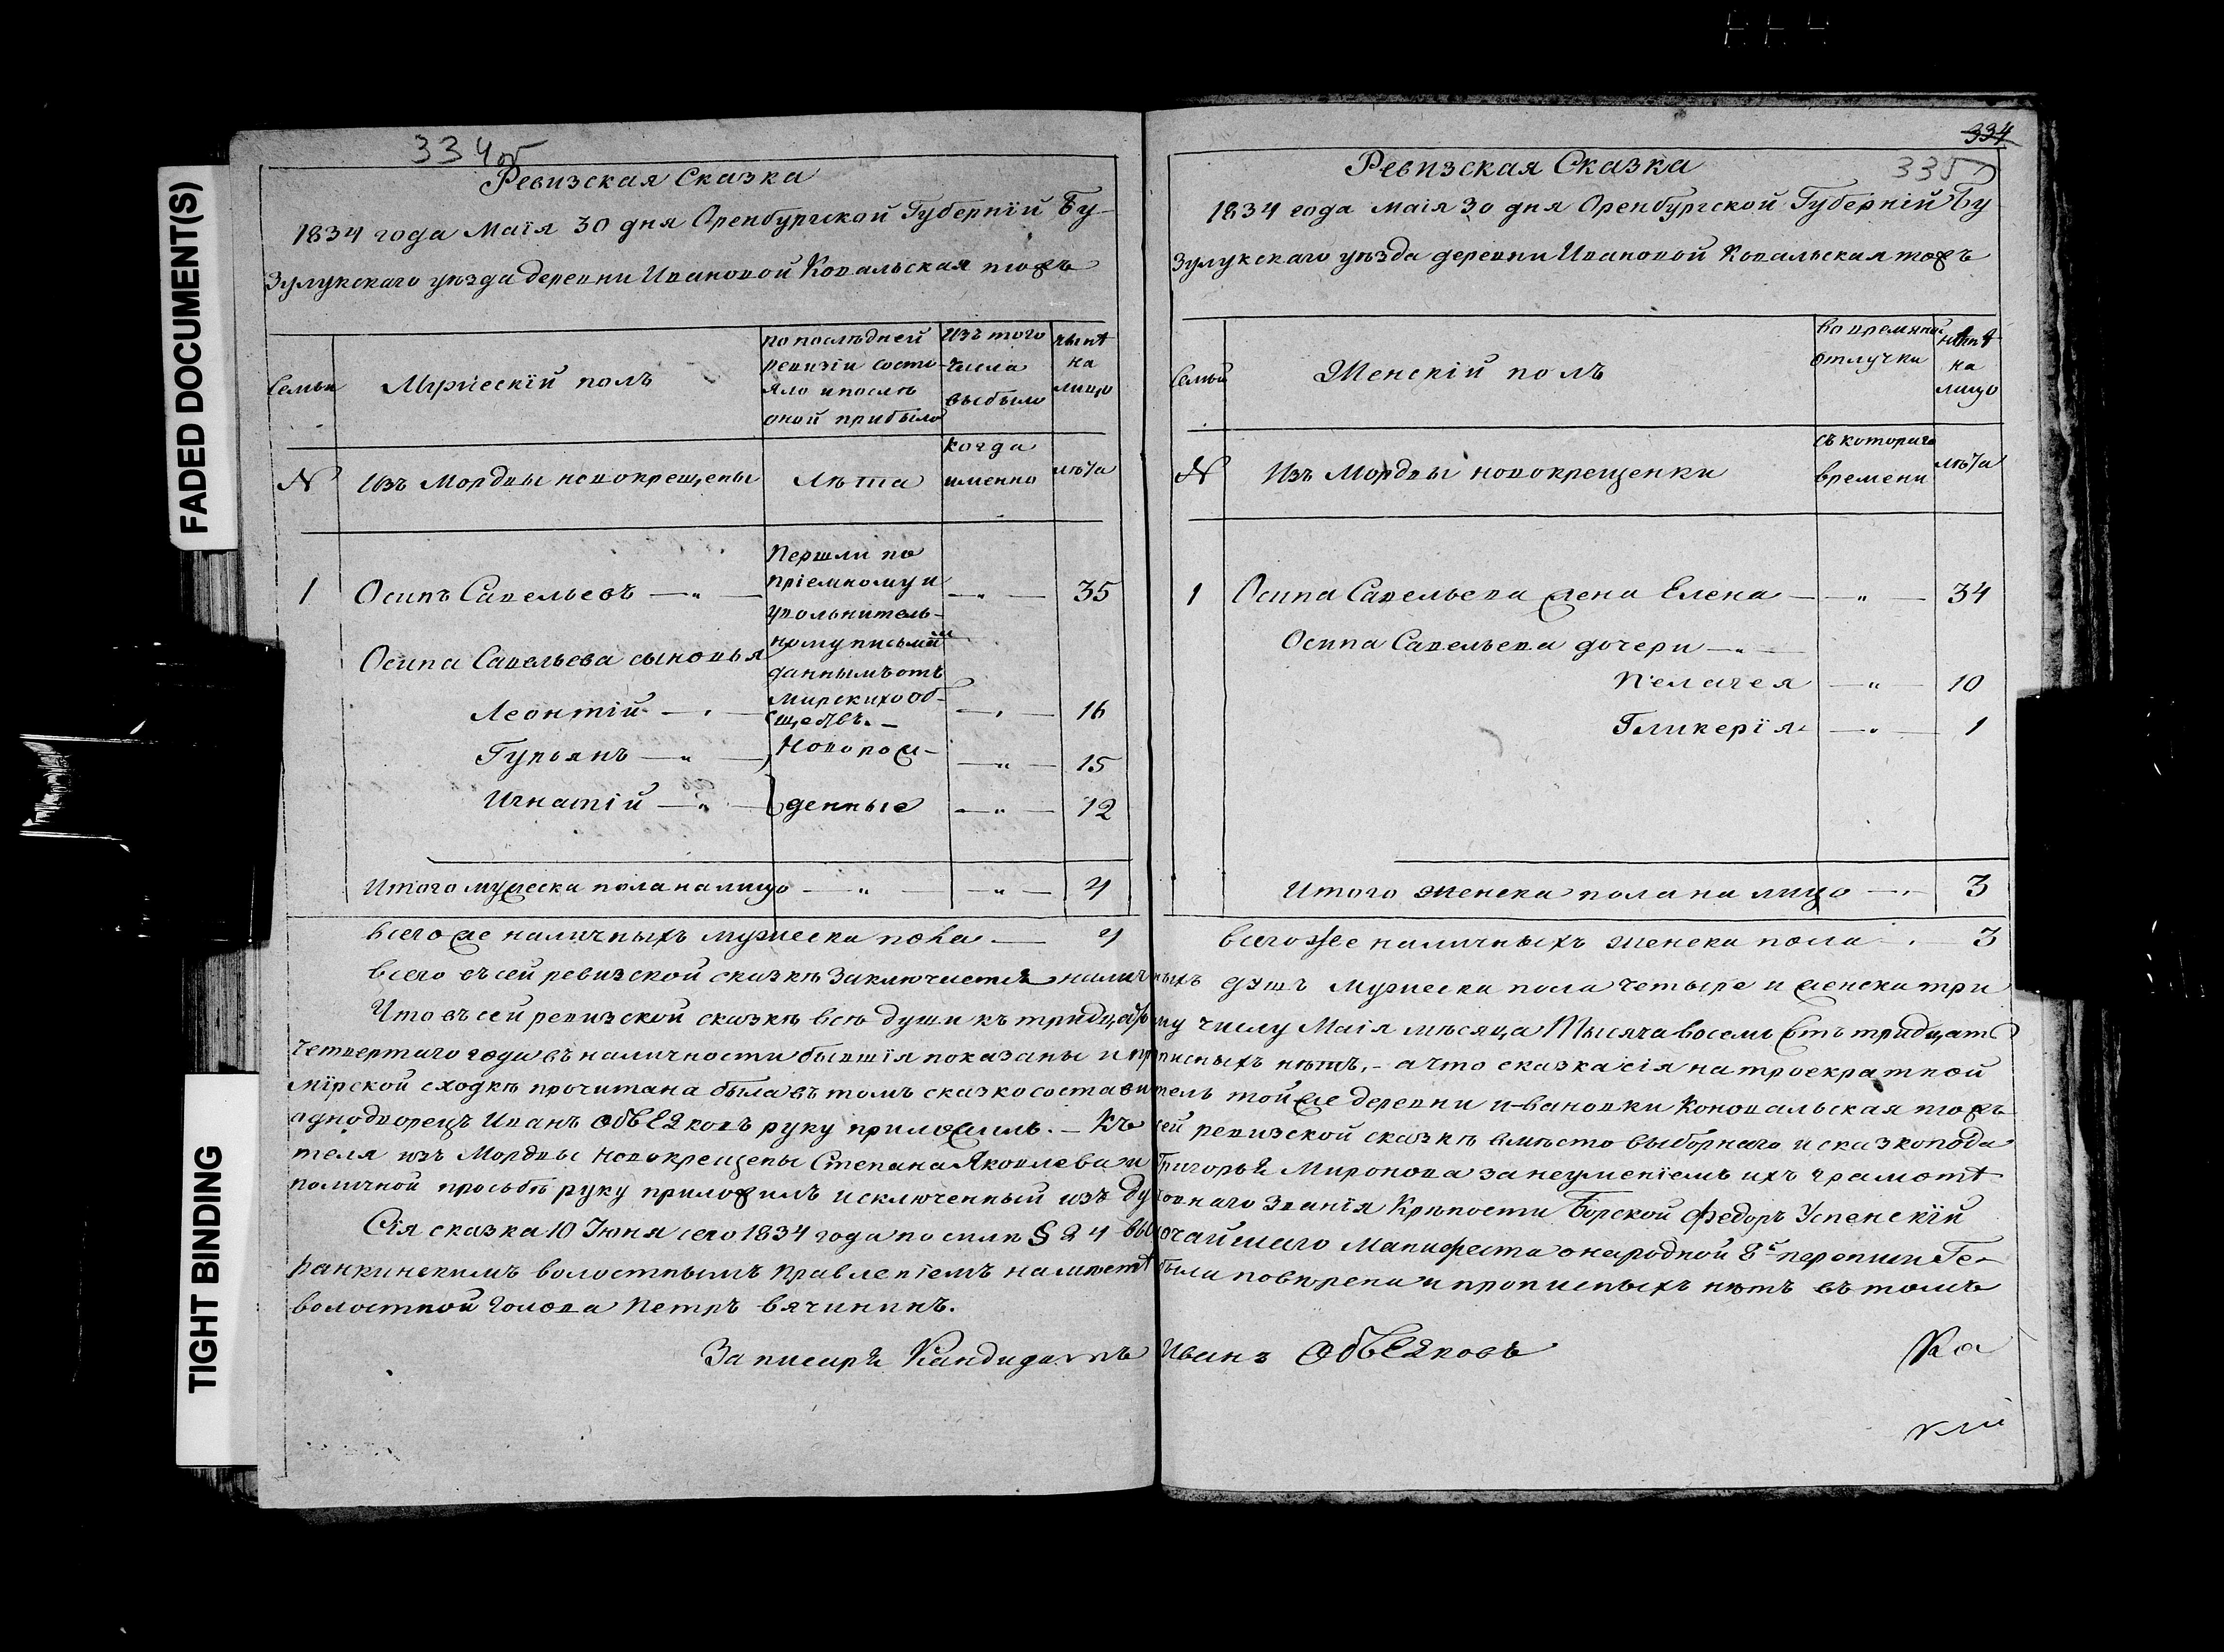 FADED DOCUMENT(S)
TIGHT BINDING
334об
Ревизская Сказка
1834 года Маія 30 дня Оренбургской Губерніи Бу-
зулукскаго уѣзда деревни Ивановой Ковальская тожъ
Семьи
Мужескій полъ
по послѣдней
ревизіи состо-
яло и послѣ
оной прибыло
Изъ того
числа
выбыло
нынѣ
на
лицо
№
Изъ Мордвы новокрещены
Лѣта
когда
именно
лѣта
1 Осипъ Савельевъ — „ — 35
Першли по
пріемному и
увольнитель-
ному письмам
даннымъ отъ
мирскихъ об-
ществъ. —
Осипа Савельева сыновья
Леонтій — „ — 16
Гурьянъ — „ — 15
Игнатій — „ — 12
Новорож-
денные
Итого мужеска пола на лицо — „ — 4
Всего же наличныхъ мужеска пола — 4
334
335
Ревизская Сказка
1834 года маія 30 дня Оренбургской Губерніи Бу
зулукскаго уѣзда деревни Ивановой Ковальская тожъ
Семьи
Женскій полъ
во времянной
отлучки
нынѣ
на
лицо
№
Изъ Мордвы новокрещенки
съ котораго
времени
лѣта
1 Осипа Савельева жена Елена — „ — 34
Осипа Савельева дочери — „ —
Пелагея — „ — 10
Гликерія — „ — 1
Итого женска пола на лицо — „ — 3
Всего же наличныхъ женска пола — . — 3
Всего въ сей ревизской сказкѣ заключается наличныхъ душъ мужеска пола четыре и женска три
Что въ сей ревизской сказкѣ всѣ души къ тридцатому числу Маія мѣсяца Тысяча восемь сотъ тридцать
четвертаго года въ наличности бывшія показаны и прописныхъ нѣтъ, - а что сказка сія на троекратной
мірской сходкѣ прочитана была въ томъ сказко составитель той же деревни Ивановки Коновальская тожъ
однодворецъ Иванъ Объедковъ руку приложилъ. — Къ сей ревизской сказкѣ вмѣсто выборнаго и сказкопода
теля изъ Мордвы новокрещены Степана Яковлева и Григорья Миронова за неуменіемъ ихъ грамотѣ
поличной просьбѣ руку приложилъ исключенный изъ духовнаго званія Крѣпости Борской Федоръ Успенскій
Сія сказка 10 Іюня сего 1834 года по силѣ § 24 высочайшаго Манифеста о народной 8й переписи Ге-
ранкинскимъ волостнымъ Правленіемъ на мѣстѣ была повѣрена и прописныхъ нѣтъ въ томъ
волостной голова Петръ Вячининъ.
За писаря Кандидатъ Иванъ Объедковъ
Ка
кій